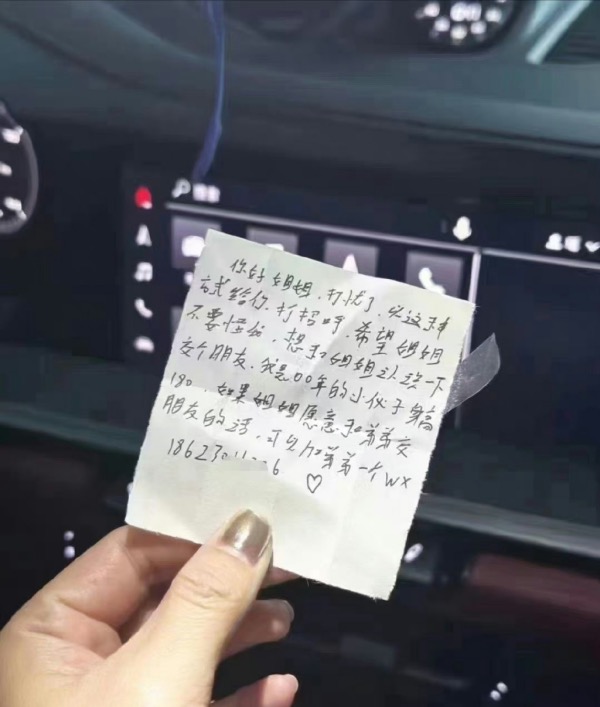 你好 姐姐,打扰了,以这种
方式给你打招呼,希望姐姐
不要介意,想和姐姐认识一下
交个朋友,我是00年的小伙子身高
180,如果姐姐愿意和弟弟交
朋友的话,可以加弟弟一个WX
♡